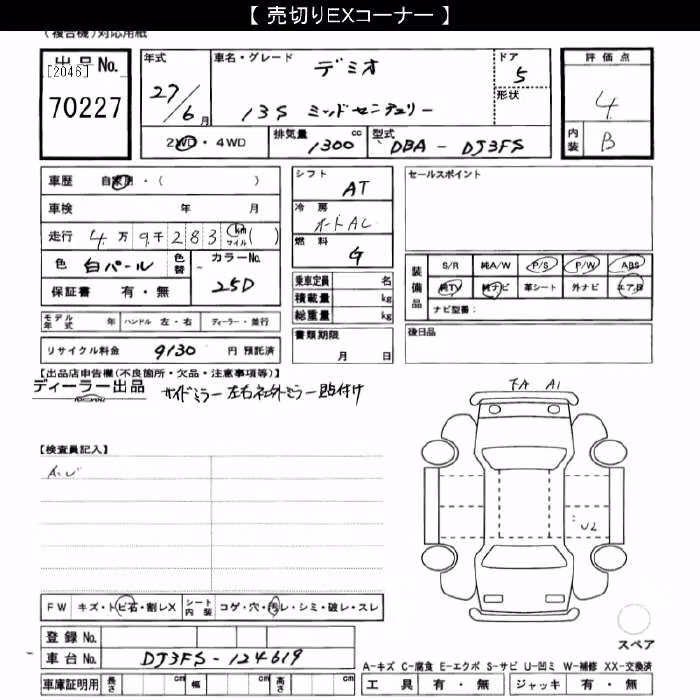 【 売切りEXコーナー 】
(複合機)対応用紙
出品No.
[2046]
70227
年式
27/6月
車名・グレード
デミオ
13S ミッドセンチュリー
ドア
5
形状
評価点
4
内装
B
2WD・4WD
排気量 1300 cc
型式 DBA - DJ3FS
車歴 自家用・( )
車検 年 月
走行 4万9千283 km マイル ( )
色 白パール 色替
カラーNo.
25D
保証書 有・無
モデル年式 年 ハンドル 左・右 ディーラー・並行
リサイクル料金 9130 円 預託済
シフト
AT
冷房
オートAC
燃料
G
乗車定員 名
積載量 kg
総重量 kg
書類期限
月 日
セールスポイント
装備品
S/R 純A/W P/S P/W ABS
純TV 純ナビ 革シート 外ナビ エアB
ナビ型番:
後日品
【出品店申告欄(不良箇所・欠品・注意事項等)】
ディーラー出品
サイドミラー左右ネ外ミラー貼付け
【検査員記入】
FA A1
U2
FW キズ・トビ石・割レX シート内装 コゲ・穴・汚レ・シミ・破レ・スレ
登録No.
車台No. DJ3FS-124619
車庫証明用 長さ cm 幅 cm 高さ cm
スペア
A-キズ C-腐食 E-エクボ S-サビ U-凹ミ W-補修 XX-交換済
工具 有・無 ジャッキ 有・無